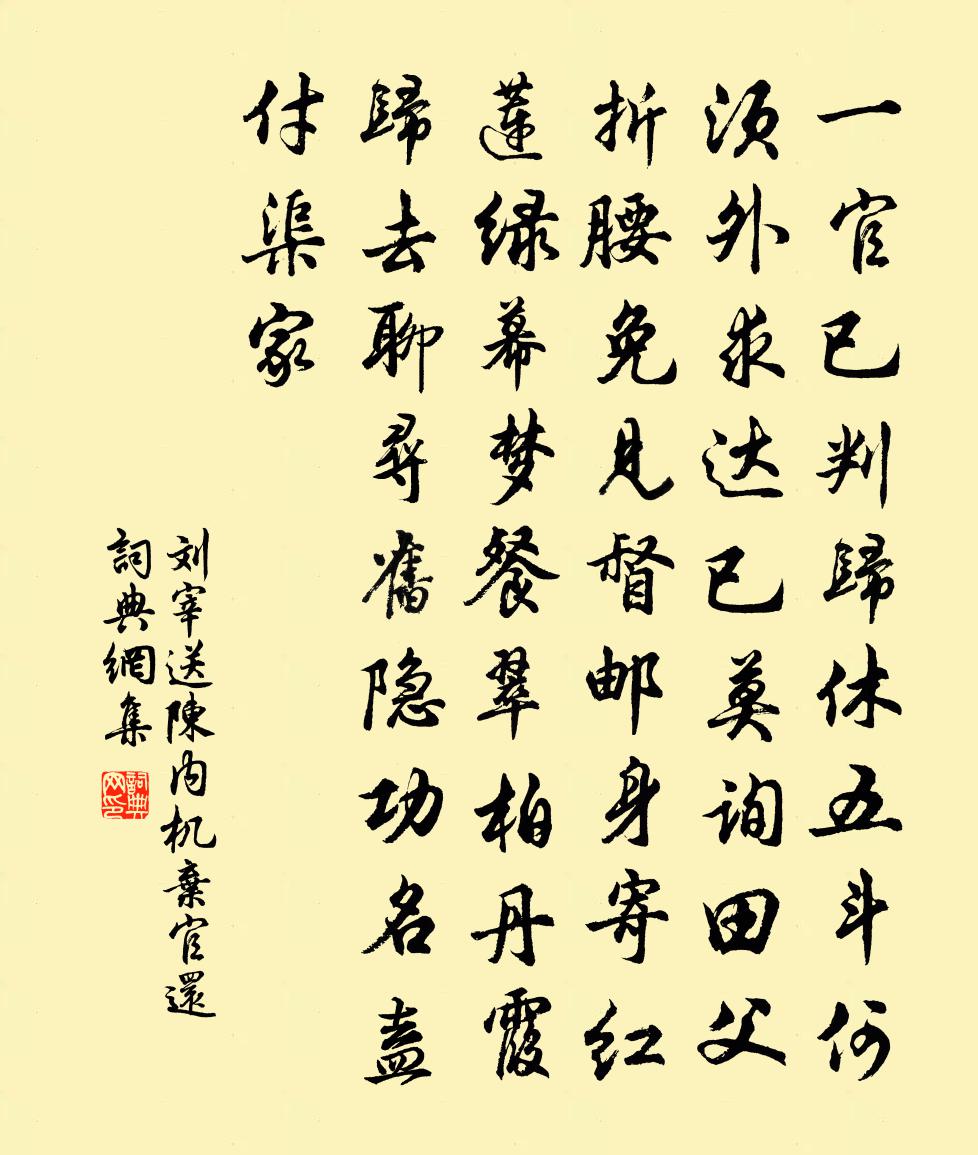 一官已判歸休五斗何
须外求达已莫询田父
折腰免見督邮身寄红
蓮绿幕梦餐翠柏丹霞
歸去聊尋舊隐功名盍
付渠家
刘宰送陳内机棄官還
詞典網集
詞典网印